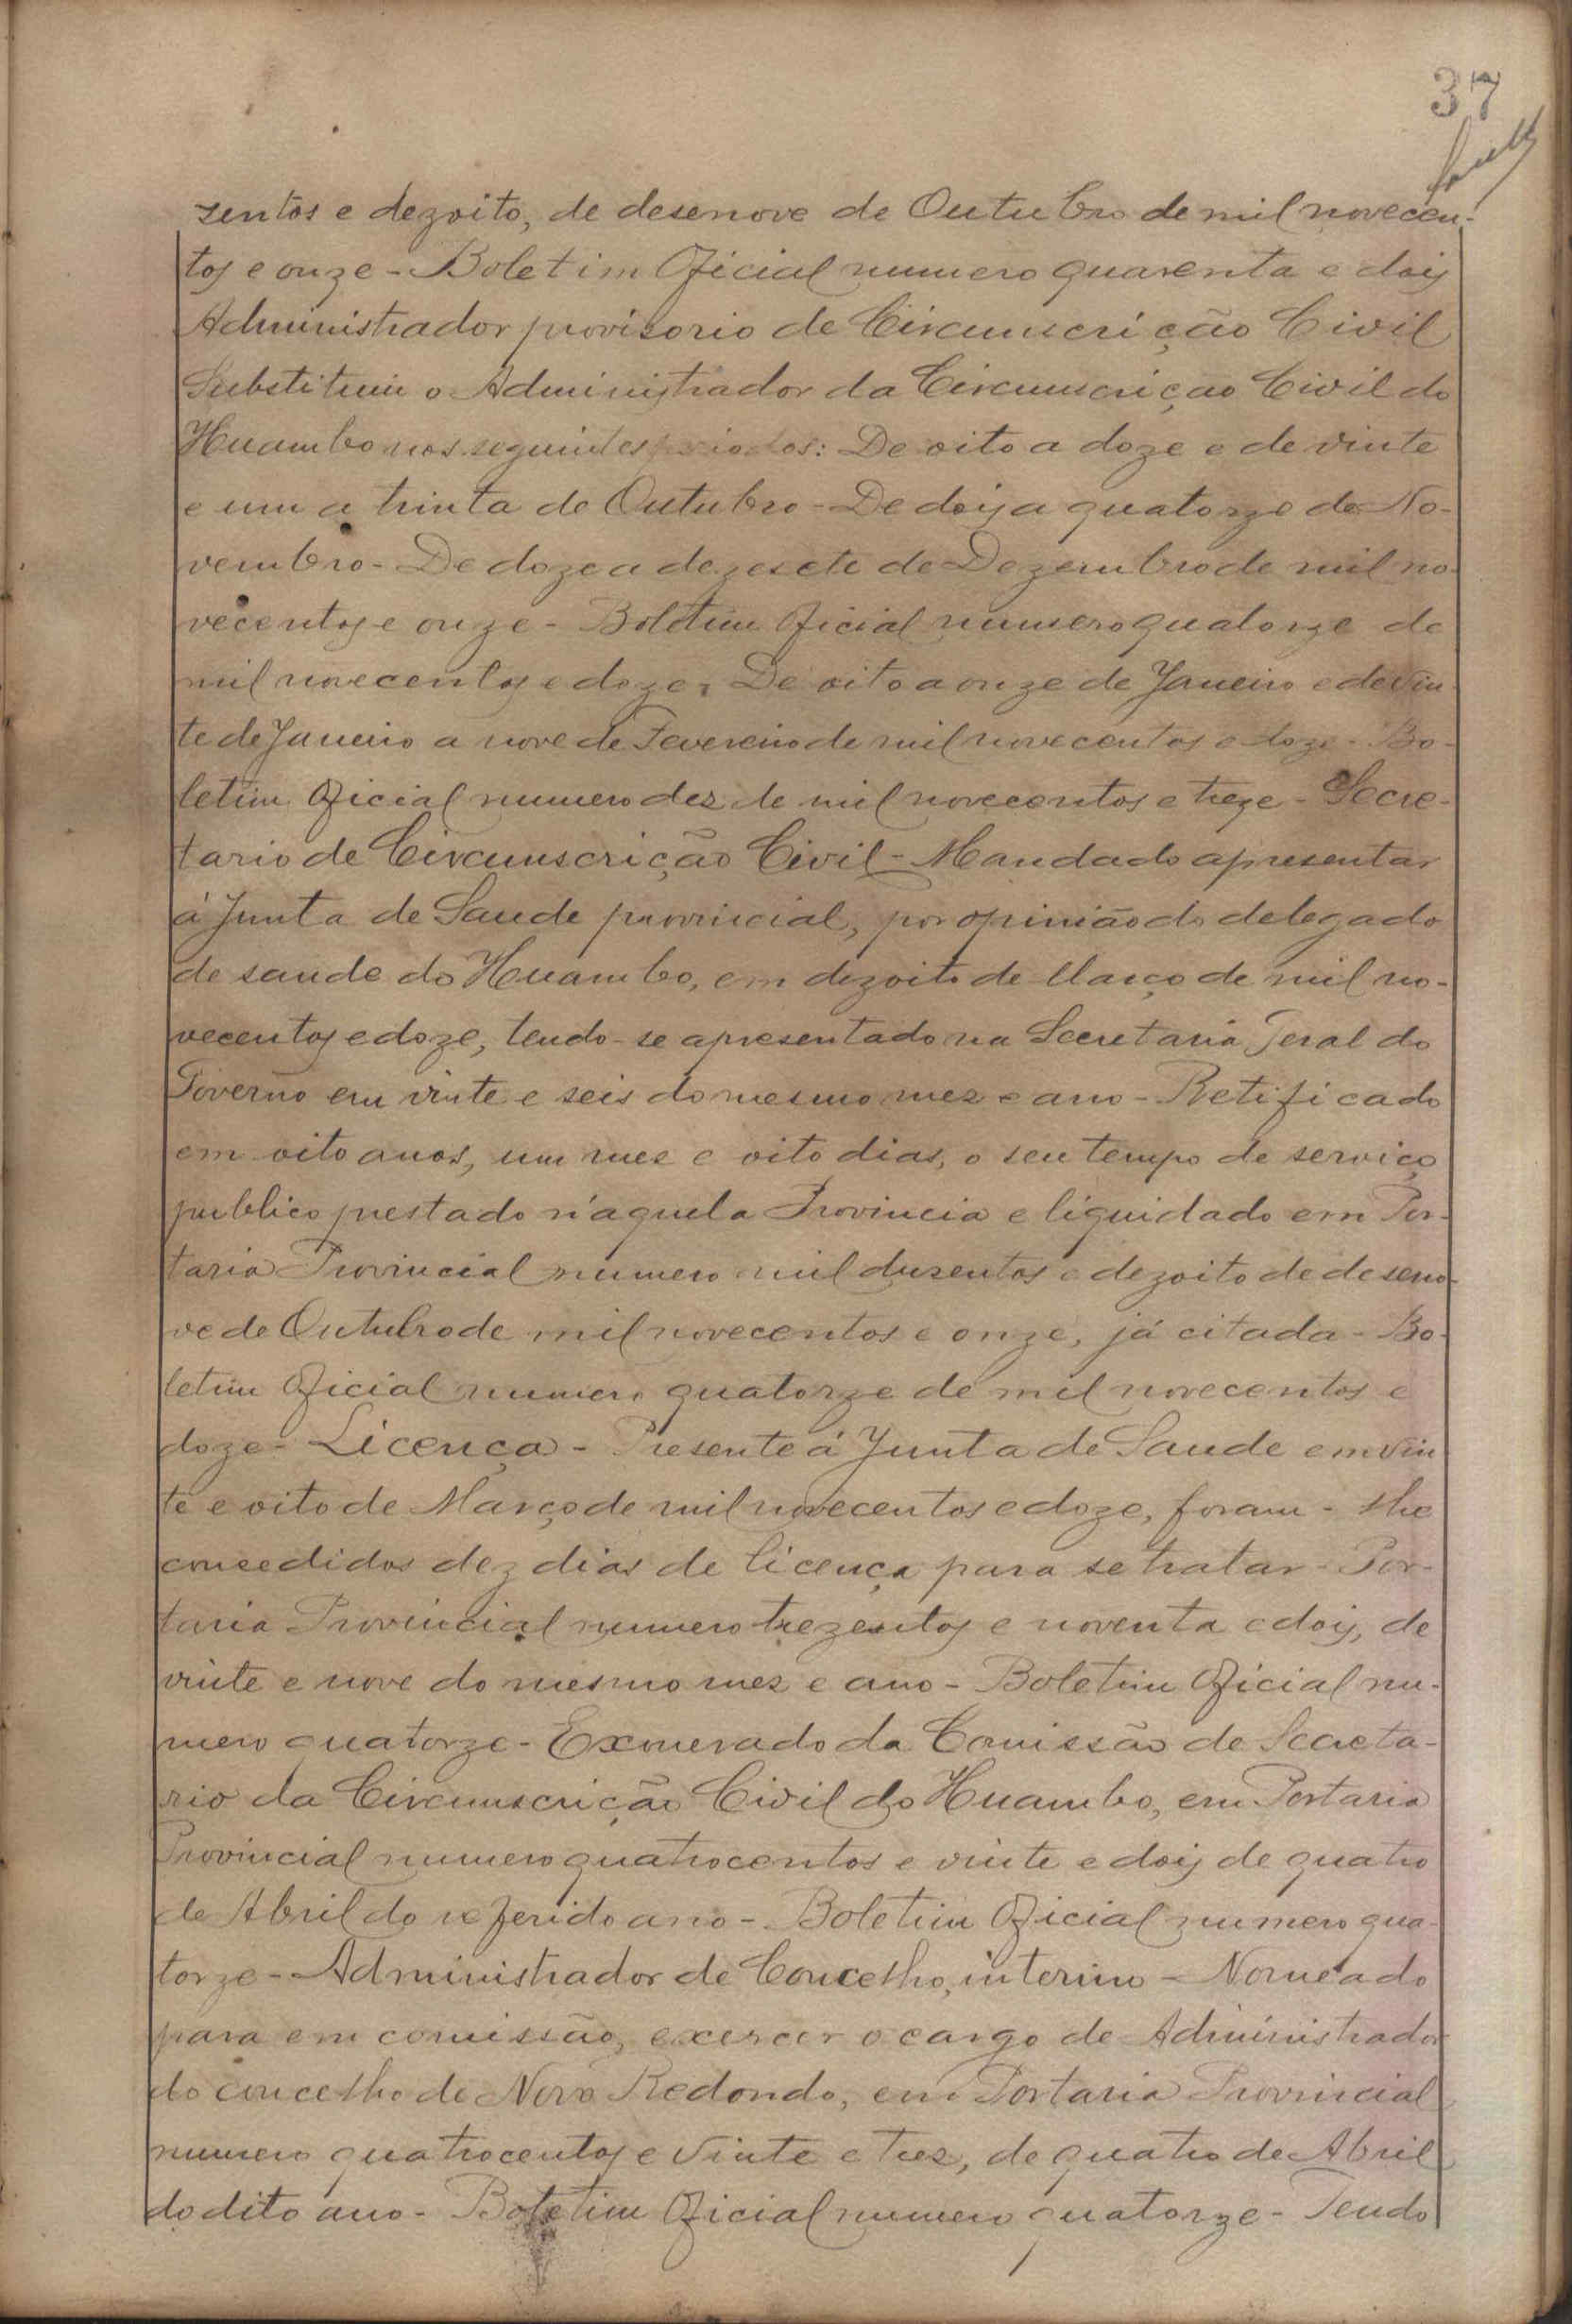 37
zentos e dezoito, de desenove de Outubro de mil novecen-
tos e onze - Boletim Oficial numero quarenta e dois
Administrador provisorio de Circunscrição Civil
Substituiu o Administrador da Circunscrição Civil do
Huambo nos seguintes periodos: De oito a doze e de vinte
e um a trinta de Outubro - De dois a quatorze de No-
vembro - De doze a dezesete de Dezembro de mil no-
vecentos e onze - Boletim Oficial numero quatorze de
mil novecentos e doze, De oito a onze de Janeiro e de vin-
te de Janeiro a nove de Fevereiro de mil novecentos e doze - Bo-
letim Oficial numero dez de mil novecentos e treze - Secre-
tario de Circunscrição Civil - Mandado apresentar
á Junta de Saude provincial, por opinião do delegado
de saude do Huambo, em dezoito de Março de mil no-
vecentos e doze, tendo-se apresentado na Secretaria Geral do
Governo em vinte e seis do mesmo mez e ano - Retificado
em oito anos, um mez e oito dias, o seu tempo de serviço
publico prestado n'aquela Provincia e liquidado em Por-
taria Provincial numero mil duzentos e dezoito de deseno-
ve de Outubro de mil novecentos e onze, já citada - Bo-
letim Oficial numero quatorze de mil novecentos e
doze - Licença - Presente á Junta de Saude em vin-
te e oito de Março de mil novecentos e doze, foram-lhe
concedidos dez dias de licença para se tratar - Por-
taria Provincial numero trezentos e noventa e dois, de
vinte e nove do mesmo mez e ano - Boletim Oficial nu-
mero quatorze - Exonerado da Comissão de Secreta-
rio da Circunscrição Civil do Huambo, em Portaria
Provincial numero quatrocentos e vinte e dois de quatro
de Abril do referido ano - Boletim Oficial numero qua-
torze - Administrador de Concelho, interino - Nomeado
para em comissão, exercer o cargo de Administrador
do concelho de Novo Redondo, em Portaria Provincial
numero quatrocentos e vinte e tres, de quatro de Abril
do dito ano - Boletim Oficial numero quatorze - Tendo